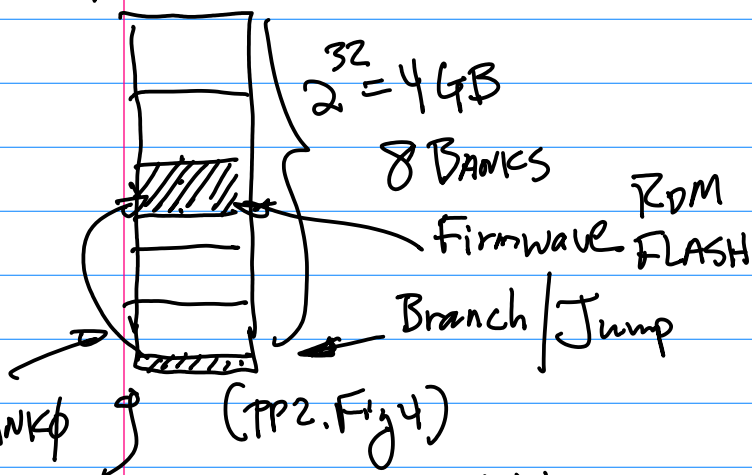 2^32 = 4 GB
8 BANKS
Firmwave ROM
FLASH
Branch / Jump
NKϕ
(PP2. Fig 4)